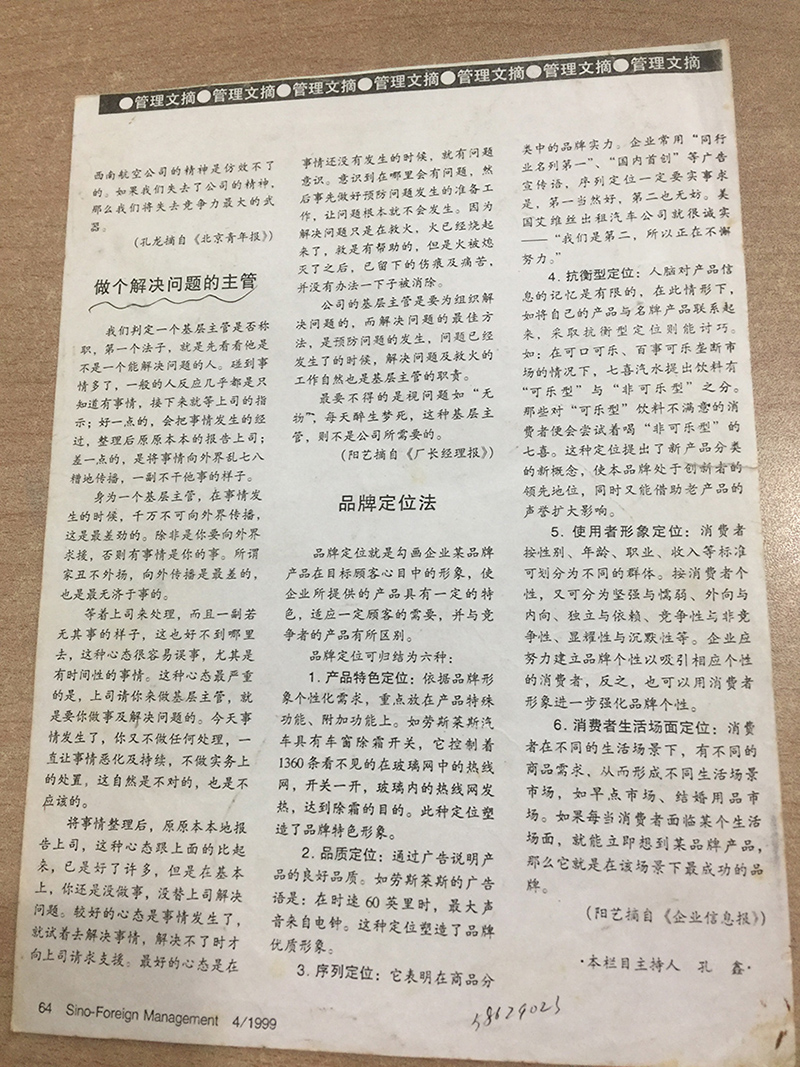 ●管理文摘●管理文摘●管理文摘●管理文摘●管理文摘●管理文摘●管理文摘
西南航空公司的精神是仿效不了
的。如果我们失去了公司的精神，
那么我们将失去竞争力最大的武
器。
(孔龙摘自《北京青年报》)
做个解决问题的主管
我们判定一个基层主管是否称
职，第一个法子，就是先看看他是
不是一个能解决问题的人。碰到事
情多了，一般的人反应几乎都是只
知道有事情，接下来就等上司的指
示；好一点的，会把事情发生的经
过，整理后原原本本的报告上司；
差一点的，是将事情向外界乱七八
糟地传播，一副不干他事的样子。
身为一个基层主管，在事情发
生的时候，千万不可向外界传播，
这是最差劲的。除非是你要向外界
求援，否则有事情是你的事。所谓
家丑不外扬，向外传播是最差的，
也是最无济于事的。
等着上司来处理，而且一副若
无其事的样子，这也好不到哪里
去，这种心态很容易误事，尤其是
有时间性的事情。这种心态最严重
的是，上司请你来做基层主管，就
是要你做事及解决问题的。今天事
情发生了，你又不做任何处理，一
直让事情恶化及持续，不做实务上
的处置，这自然是不对的，也是不
应该的。
将事情整理后，原原本本地报
告上司，这种心态跟上面的比起
来，已是好了许多，但是在基本
上，你还是没做事，没替上司解决
问题。较好的心态是事情发生了，
就试着去解决事情，解决不了时才
向上司请求支援。最好的心态是在
事情还没有发生的时候，就有问题
意识。意识到在哪里会有问题，然
后事先做好预防问题发生的准备工
作，让问题根本就不会发生。因为
解决问题只是在救火，火已经烧起
来了，救是有帮助的，但是火被熄
灭了之后，已留下的伤痕及痛苦，
并没有办法一下子被消除。
公司的基层主管是要为组织解
决问题的，而解决问题的最佳方
法，是预防问题的发生，问题已经
发生了的时候，解决问题及救火的
工作自然也是基层主管的职责。
最要不得的是视问题如“无
物”，每天醉生梦死，这种基层主
管，则不是公司所需要的。
(阳艺摘自《厂长经理报》)
品牌定位法
品牌定位就是勾画企业某品牌
产品在目标顾客心目中的形象，使
企业所提供的产品具有一定的特
色，适应一定顾客的需要，并与竞
争者的产品有所区别。
品牌定位可归结为六种：
1．产品特色定位：依据品牌形
象个性化需求，重点放在产品特殊
功能、附加功能上。如劳斯莱斯汽
车具有车窗除霜开关，它控制着
1360条看不见的在玻璃网中的热线
网，开关一开，玻璃内的热线网发
热，达到除霜的目的。此种定位塑
造了品牌特色形象。
2．品质定位：通过广告说明产
品的良好品质。如劳斯莱斯的广告
语是：在时速60英里时，最大声
音来自电钟。这种定位塑造了品牌
优质形象。
3．序列定位：它表明在商品分
类中的品牌实力。企业常用“同行
业名列第一”、“国内首创”等广告
宣传语，序列定位一定要实事求
是，第一当然好，第二也无妨。美
国艾维丝出租汽车公司就很诚实
——“我们是第二，所以正在不懈
努力。”
4．抗衡型定位：人脑对产品信
息的记忆是有限的，在此情形下，
如将自己的产品与名牌产品联系起
来，采取抗衡型定位则能讨巧。
如：在可口可乐、百事可乐垄断市
场的情况下，七喜汽水提出饮料有
“可乐型”与“非可乐型”之分。
那些对“可乐型”饮料不满意的消
费者便会尝试着喝“非可乐型”的
七喜。这种定位提出了新产品分类
的新概念，使本品牌处于创新者的
领先地位，同时又能借助老产品的
声誉扩大影响。
5．使用者形象定位：消费者
按性别、年龄、职业、收入等标准
可划分为不同的群体。按消费者个
性，又可分为坚强与懦弱、外向与
内向、独立与依赖、竞争性与非竞
争性、显耀性与沉默性等。企业应
努力建立品牌个性以吸引相应个性
的消费者，反之，也可以用消费者
形象进一步强化品牌个性。
6．消费者生活场面定位：消费
者在不同的生活场景下，有不同的
商品需求，从而形成不同生活场景
市场，如早点市场、结婚用品市
场。如果每当消费者面临某个生活
场面，就能立即想到某品牌产品，
那么它就是在该场景下最成功的品
牌。
(阳艺摘自《企业信息报》)
·本栏目主持人 孔 鑫·
64 Sino-Foreign Management 4/1999